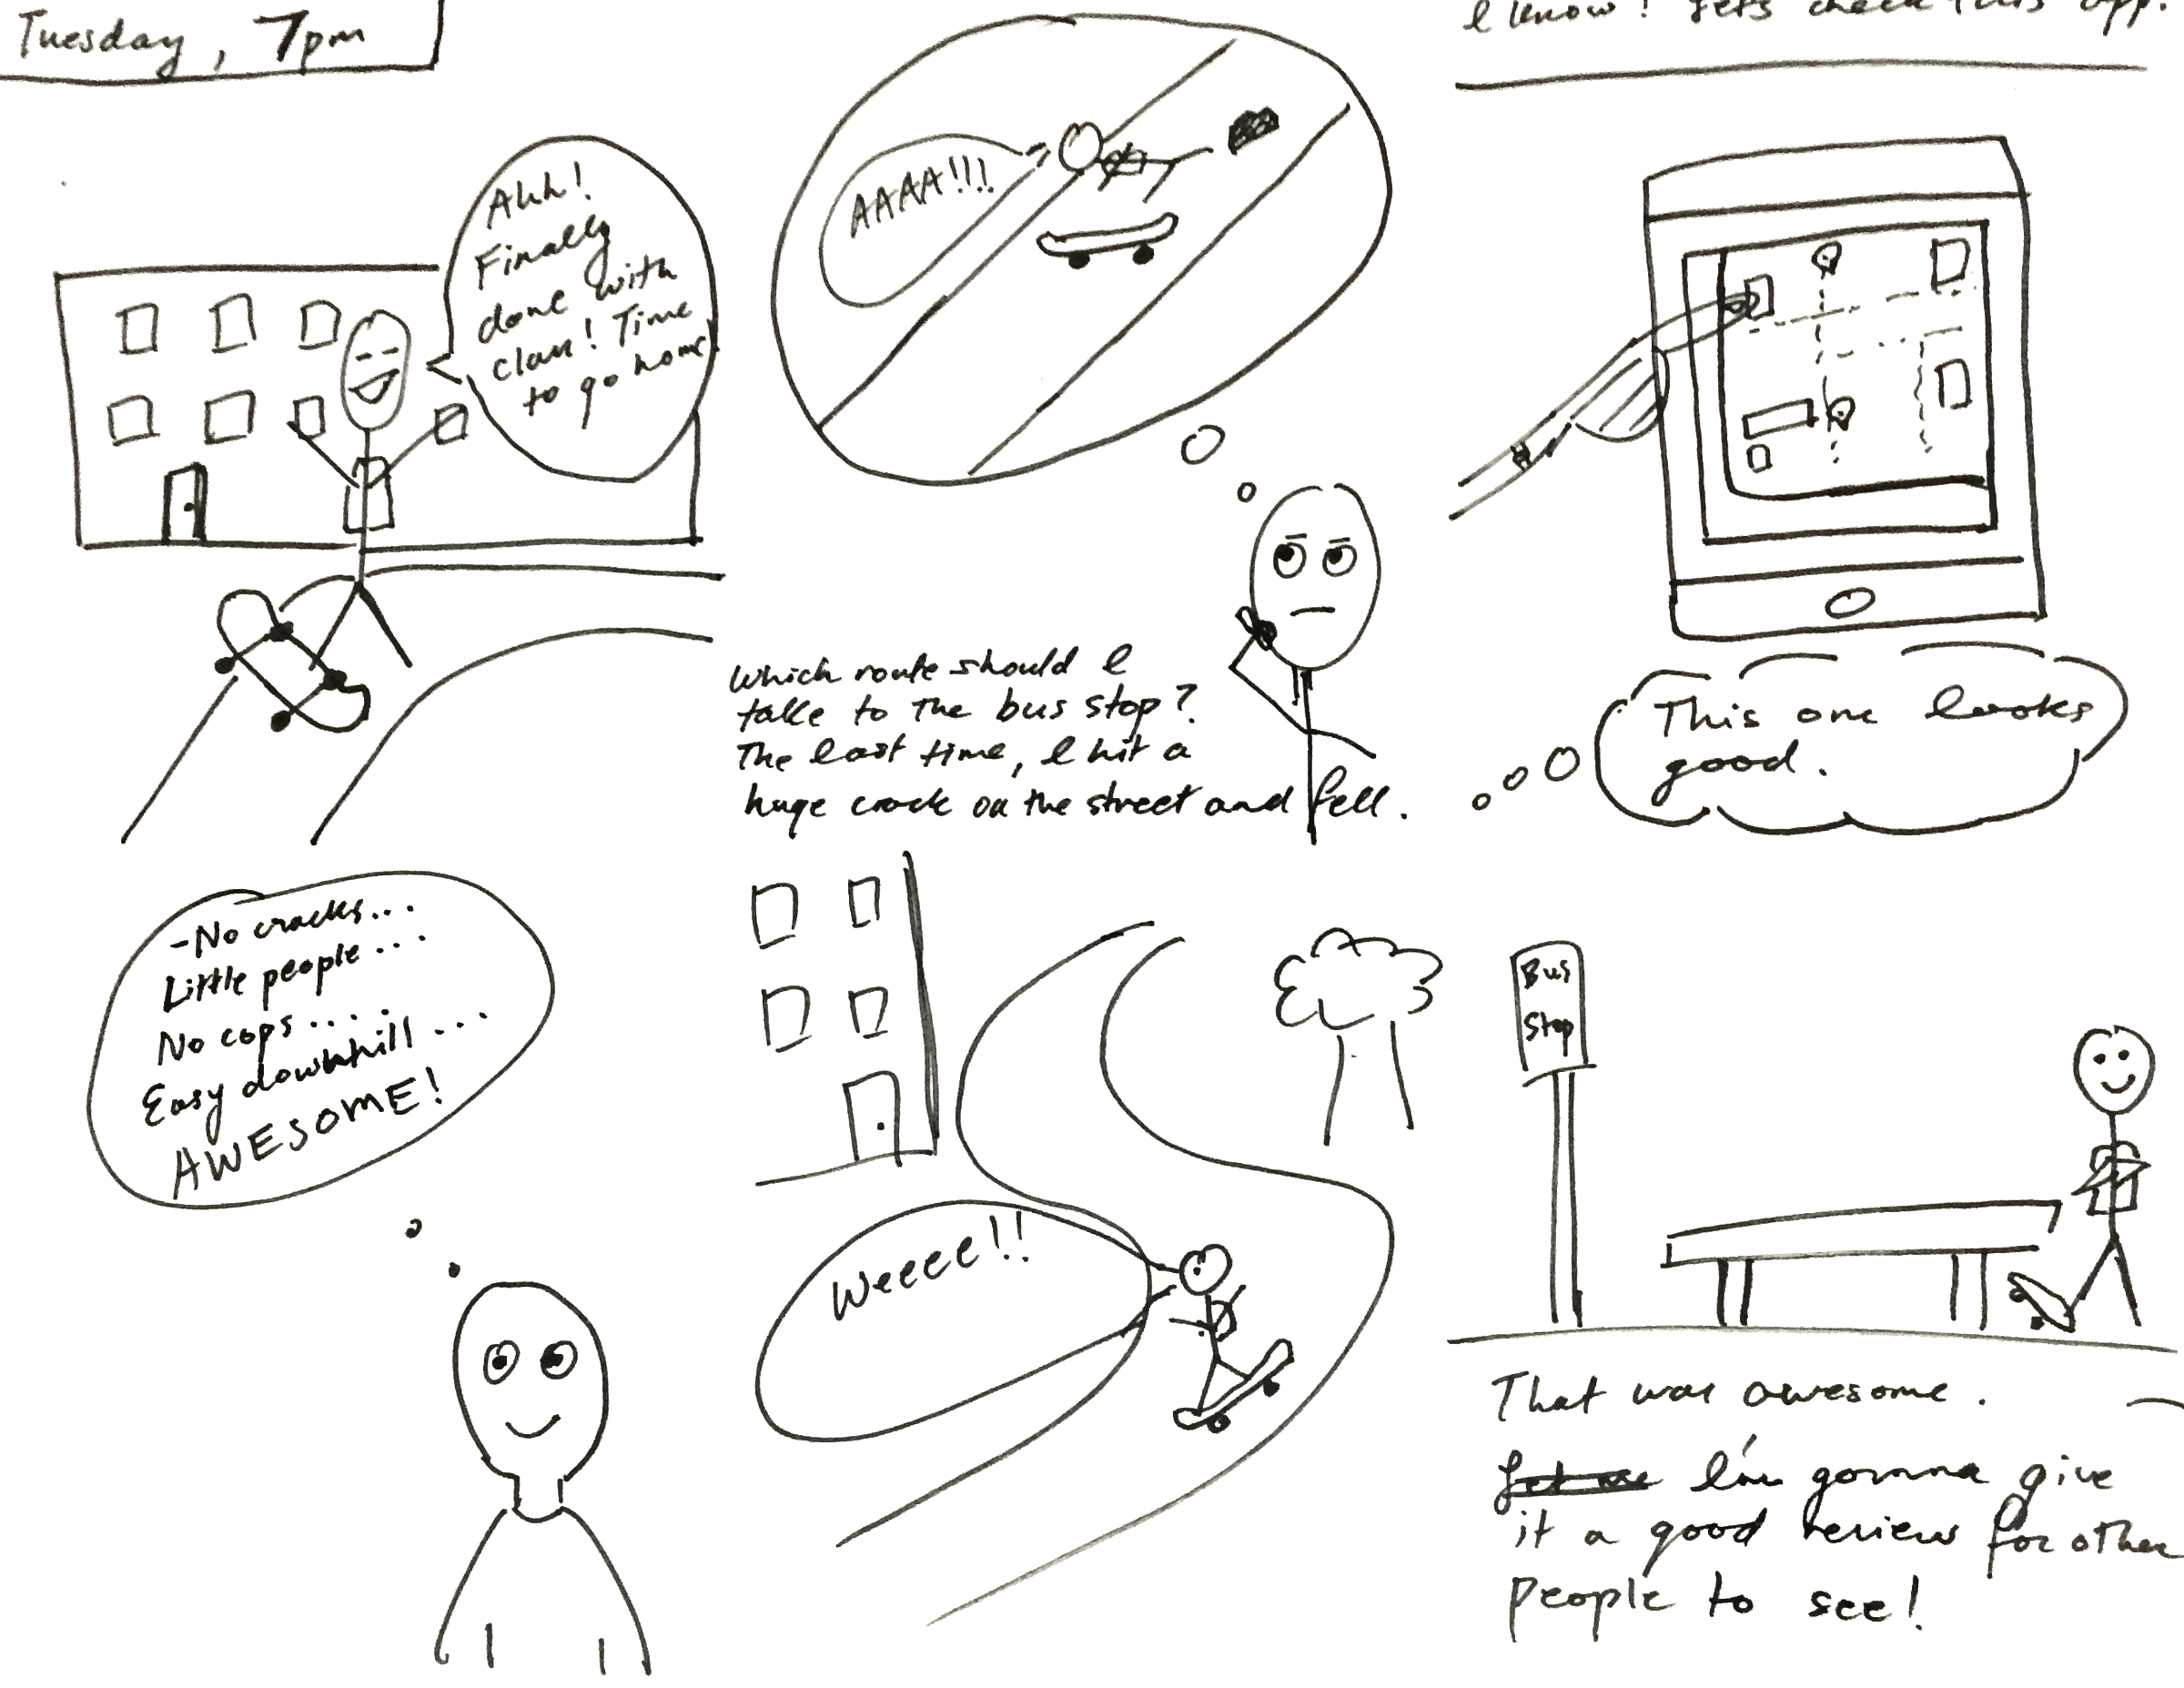 Tuesday, 7pm
Ahh!
Finally
done with
class! Time
to go home
AAAA!!!!
Which route should I
take to the bus stop?
The last time, I hit a
huge crack on the street and fell.
I know! Lets check this app.
This one looks
good.
-No cracks...
Little people...
No cops.....
Easy downhill...
AWESOME!
Weeee!!
Bus
Stop
That was awesome.
I'm gonna give
it a good review for other
people to see!